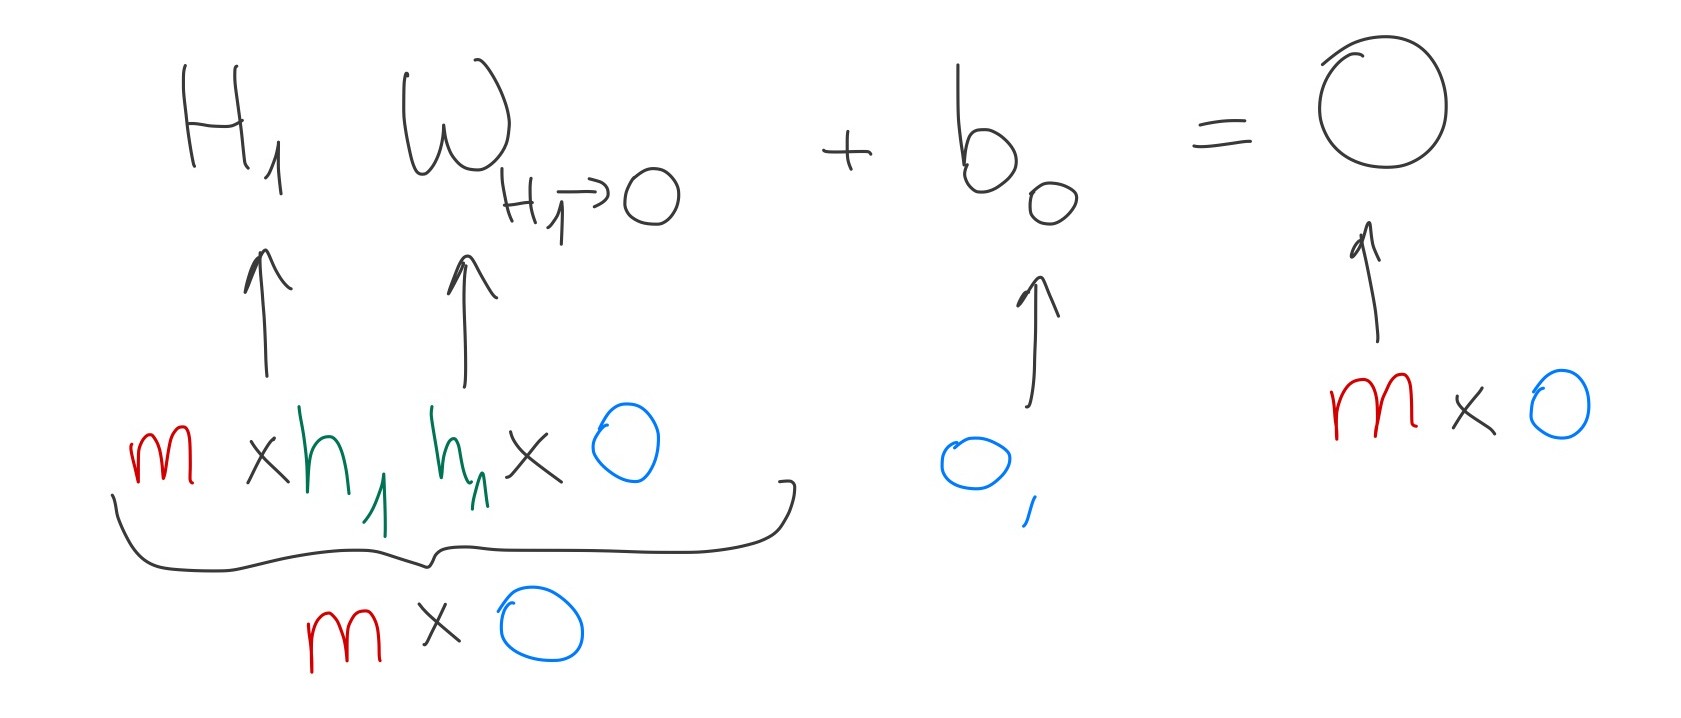 H₁ W_{H₁→O} + b_O = O
m × h₁ h₁ × O O, m × O
m × O